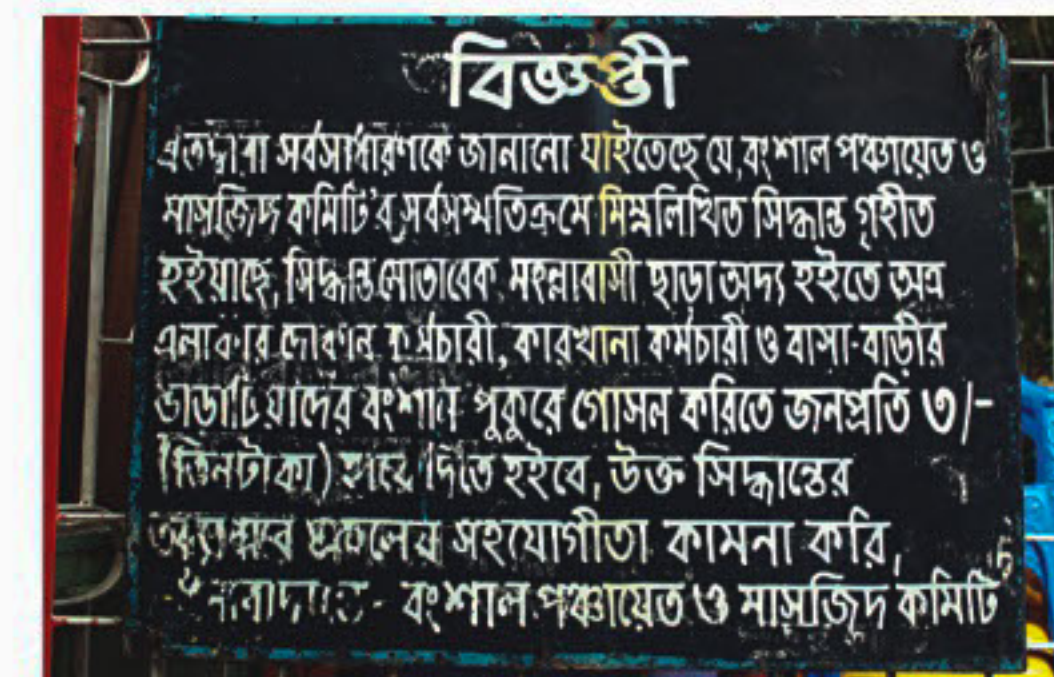 বিজ্ঞপ্তী
এতদ্বারা সর্বসাধারণকে জানানো যাইতেছে যে, বংশাল পঞ্চায়েত ও
মাসজিদ কমিটি'র সর্বসম্মতিক্রমে নিম্নলিখিত সিদ্ধান্ত গৃহীত
হইয়াছে, সিদ্ধান্ত মোতাবেক মহল্লাবাসী ছাড়া অদ্য হইতে অত্র
এলাকার দোকান কর্মচারী, কারখানা কর্মচারী ও বাসা-বাড়ীর
ভাড়াটিয়াদের বংশাল পুকুরে গোসল করিতে জনপ্রতি ৩/-
(তিনটাকা) হারে দিতে হইবে, উক্ত সিদ্ধান্তের
সহযোগীতা কামনা করি,
বংশাল পঞ্চায়েত ও মাসজিদ কমিটি